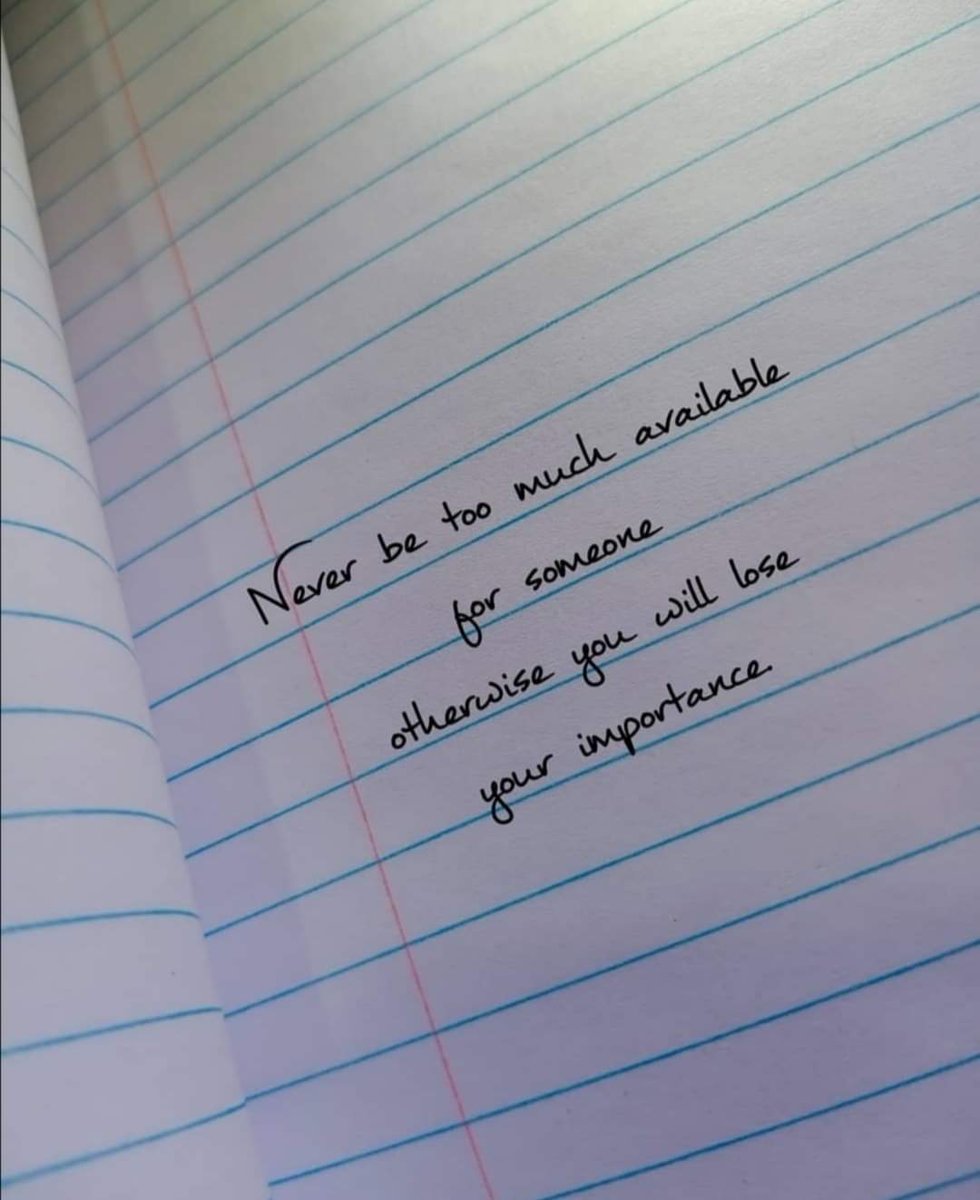 Never be too much available
for someone
otherwise you will lose
your importance.